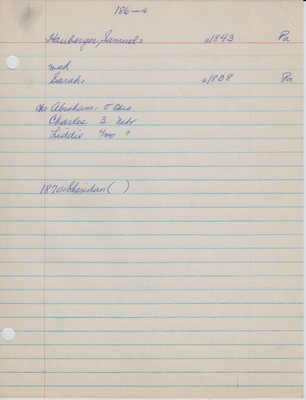 186-A
Hauberger, Samuel: a/1843 Pa
mch
Sarah: a/1838 Pa
ch: Abraham: 5 Ohio
Charlie 3 Nebr
Liddie 4mo ?
1870: Sheridan ( )